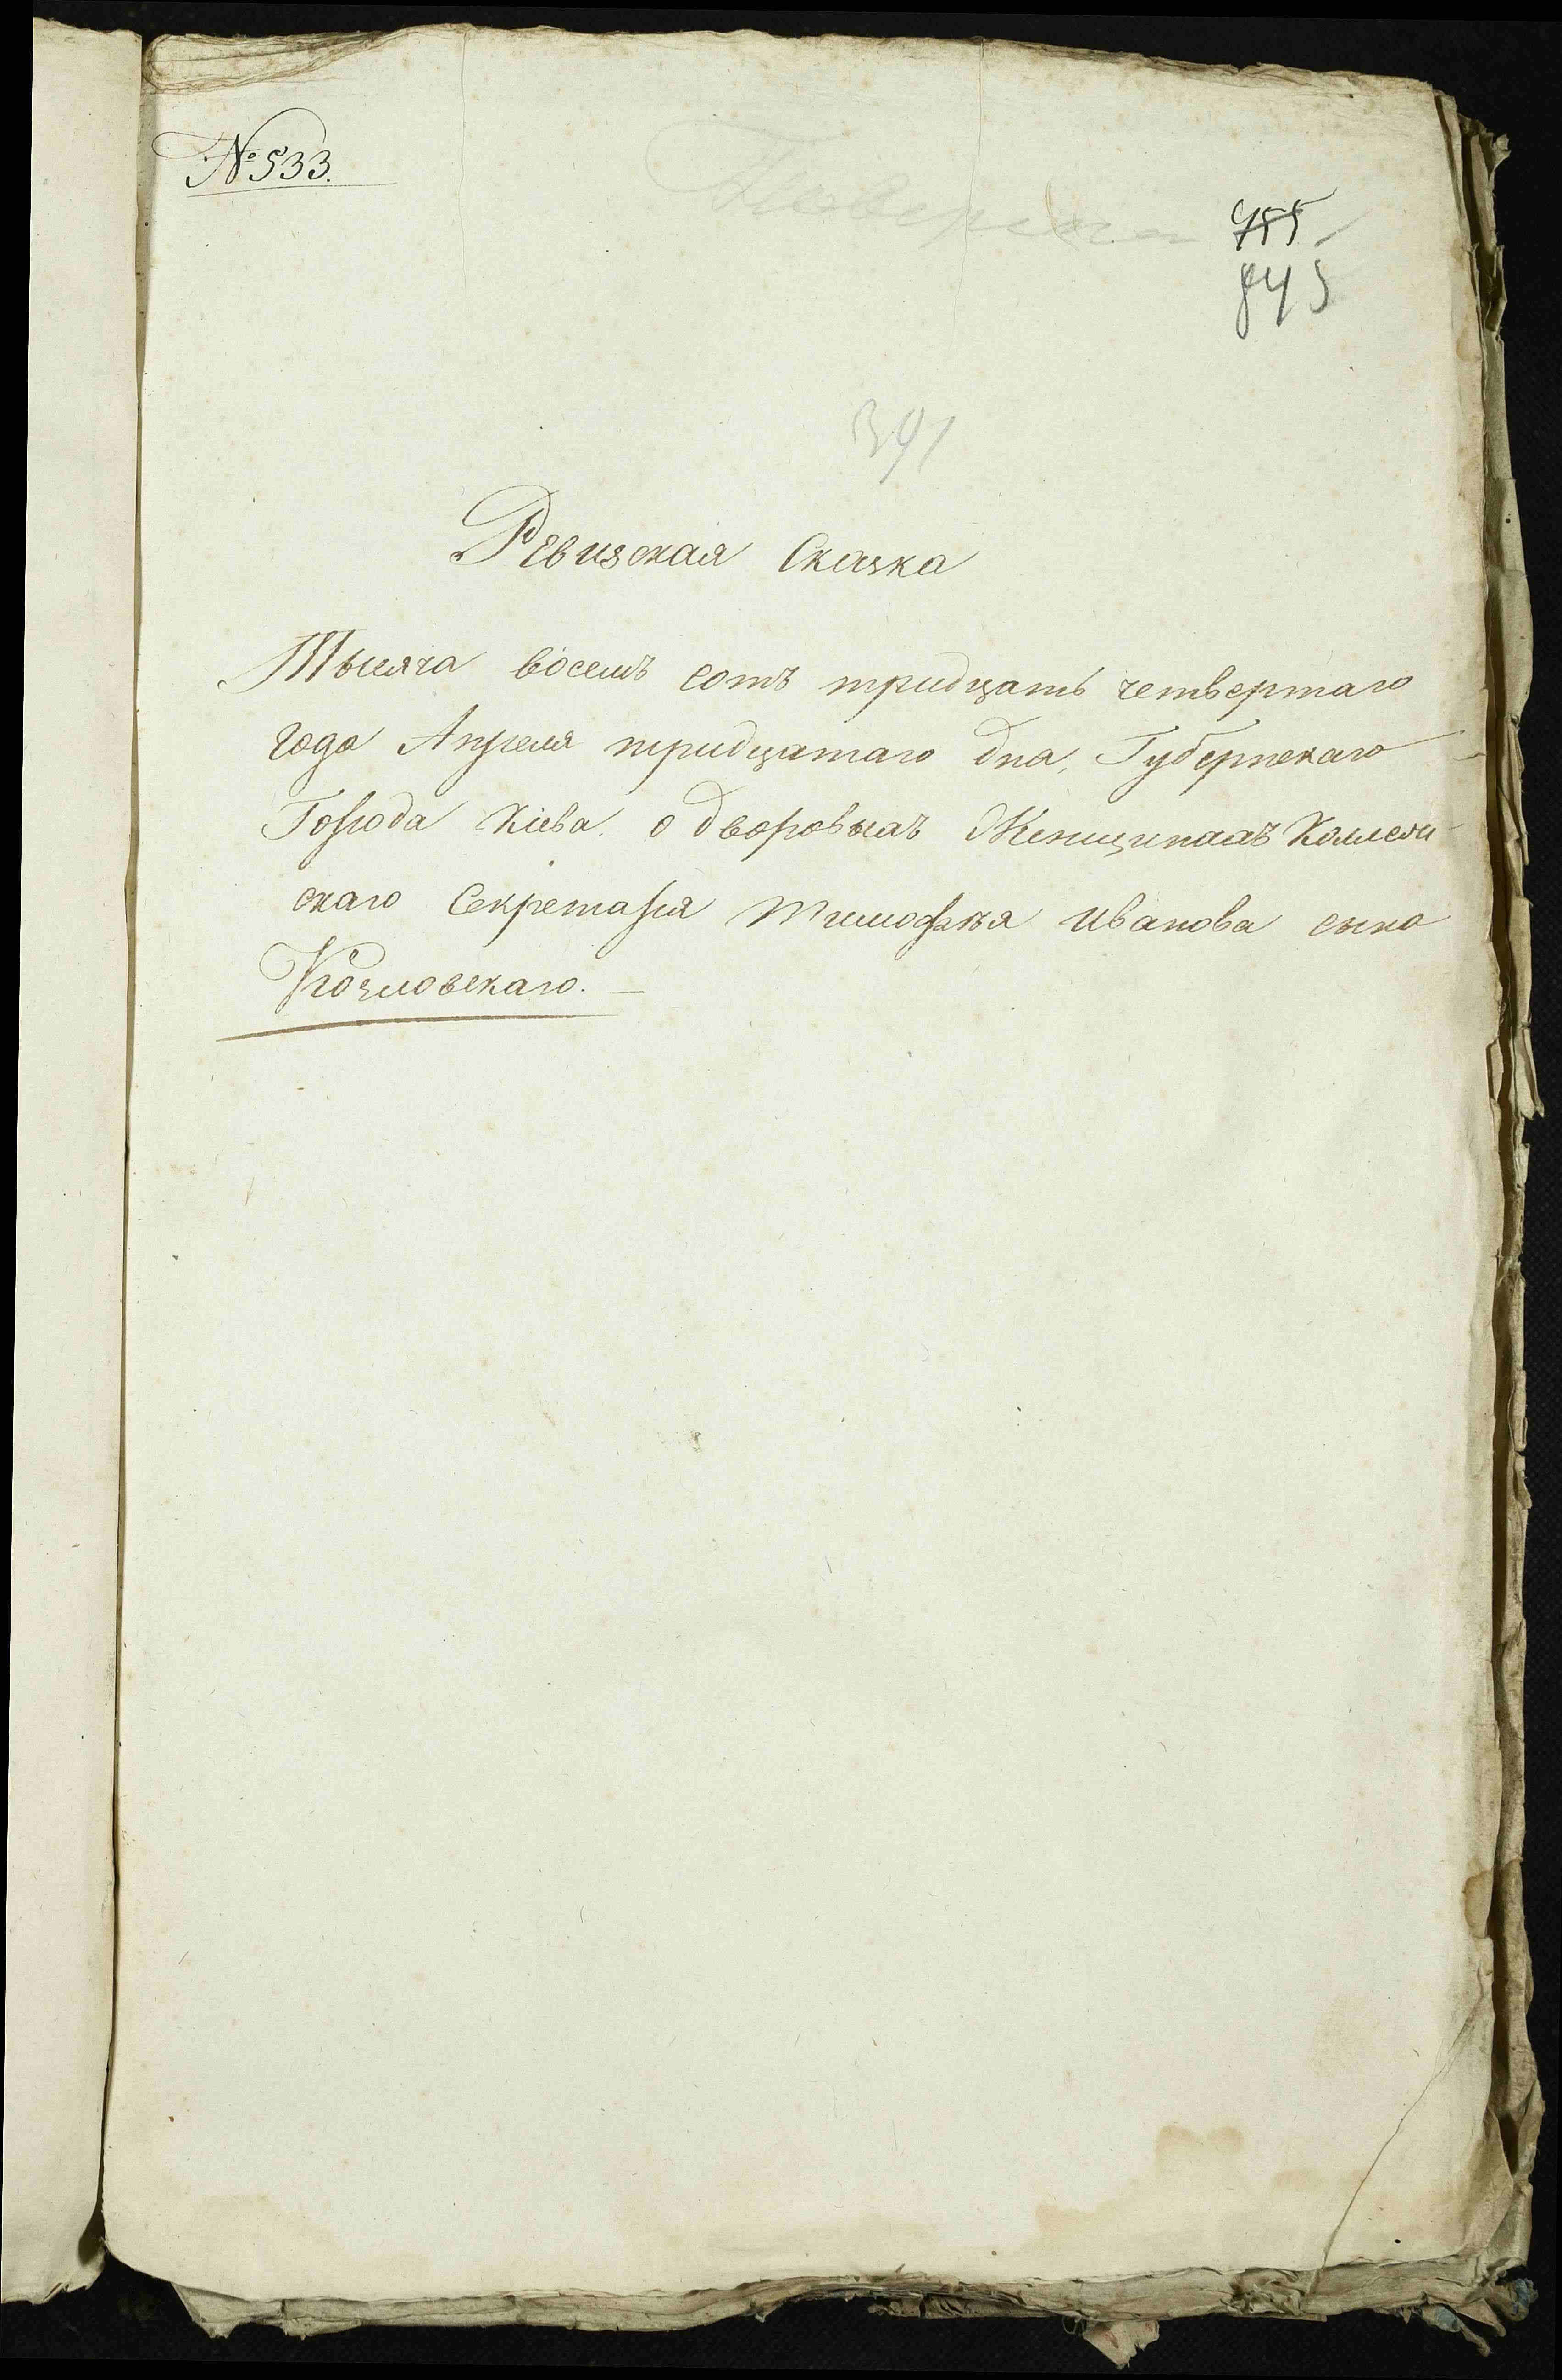 № 533.
755
845
391
Ревизская Сказка
Тысяча восемъ сотъ тридцать четвертаго
года Апреля тридцатаго дна, Губернскаго
Города Кіева о дворовыхъ Женщинахъ Коллежи
скаго Секретаря Тимофѣя Иванова сына
Козловскаго. —